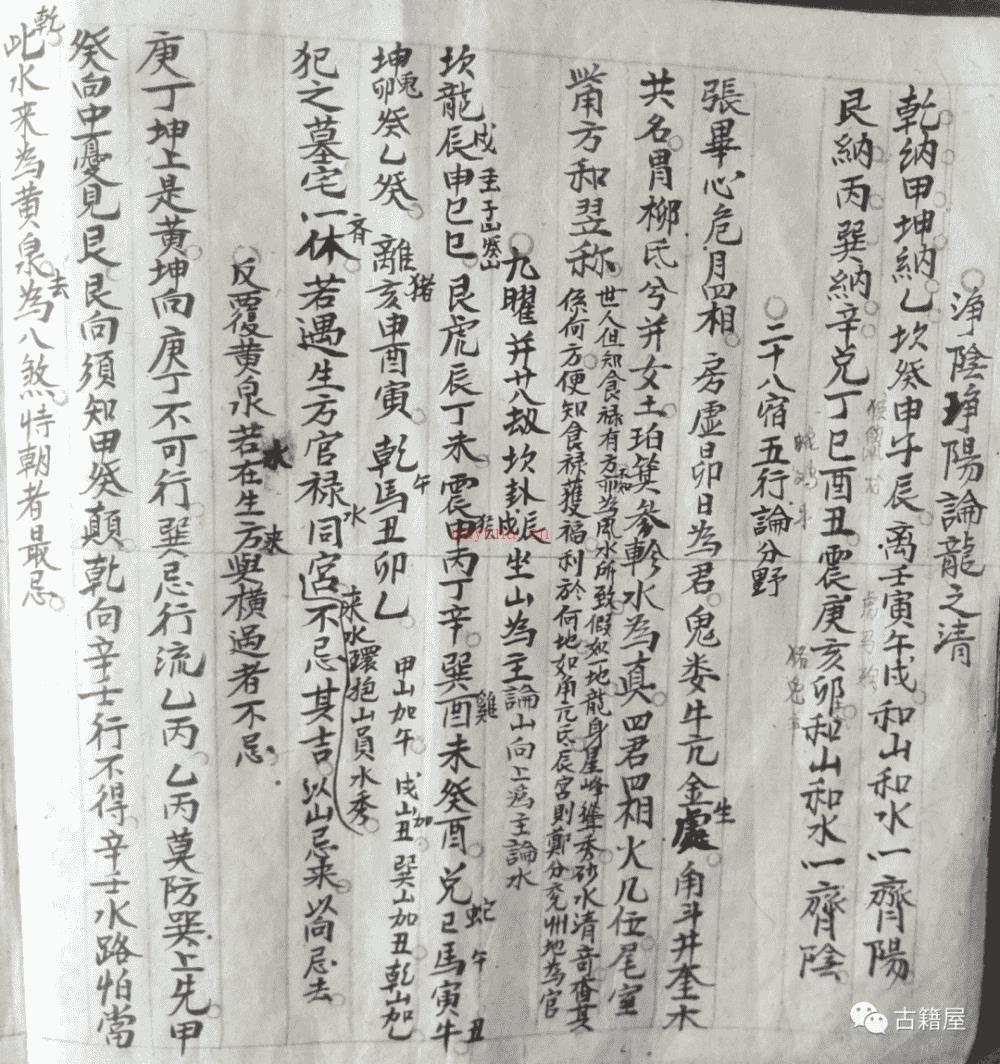 净陰净陽論龍之清
乾納甲坤納乙坎癸申子辰离壬寅午戌和山和水一齊陽
艮納丙巽納辛兑丁巳酉丑震庚亥卯和山和水一齊陰
二十八宿五行論分野
張畢心危月四相房虚日卯日為君鬼娄牛亢金處生角斗井奎木
共名胃柳氐兮并女土珀箕參軫水為真四君四相火几位尾室
觜方和翌称世人但知食禄有方不知為風水所致假如一地龍身星峰聳秀砂水清奇查其
係何方便知食禄獲福利於何地如角亢氐辰宮則鄭分兖州地為官
九曜并廿八劫坎卦戌辰坐山為主論山向上為主論水
坎龍戌辰申巳巳壬子山癸山艮虎辰丁未震申猴丙丁辛巽酉雞未癸酉兑巳蛇馬午寅牛丑
坤兎卯癸乙癸離猪亥申酉寅乾馬午丑卯乙甲山加午戌山加丑巽山加丑乾山加
犯之墓宅一齐休若遇生方官禄同宮水不忌其吉以山忌来以向忌去
来水環抱山員水秀
反覆黄泉若水在生方来與横過者不忌
庚丁坤上是黄坤向庚丁不可行巽忌行流乙丙乙丙莫防巽上先甲
癸向中憂見艮艮向須知甲癸顛乾向辛壬行不得辛壬水路怕當
乾
此水来為黄泉去為八煞特朝者最忌
nayuna.cn
古籍屋